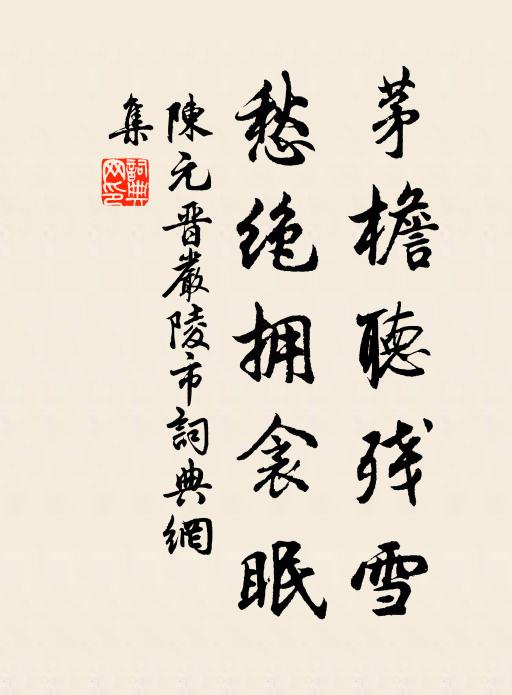 茅檐聽残雪
愁绝拥衾眠
陳元晋嚴陵市詞典網
集
詞典網印